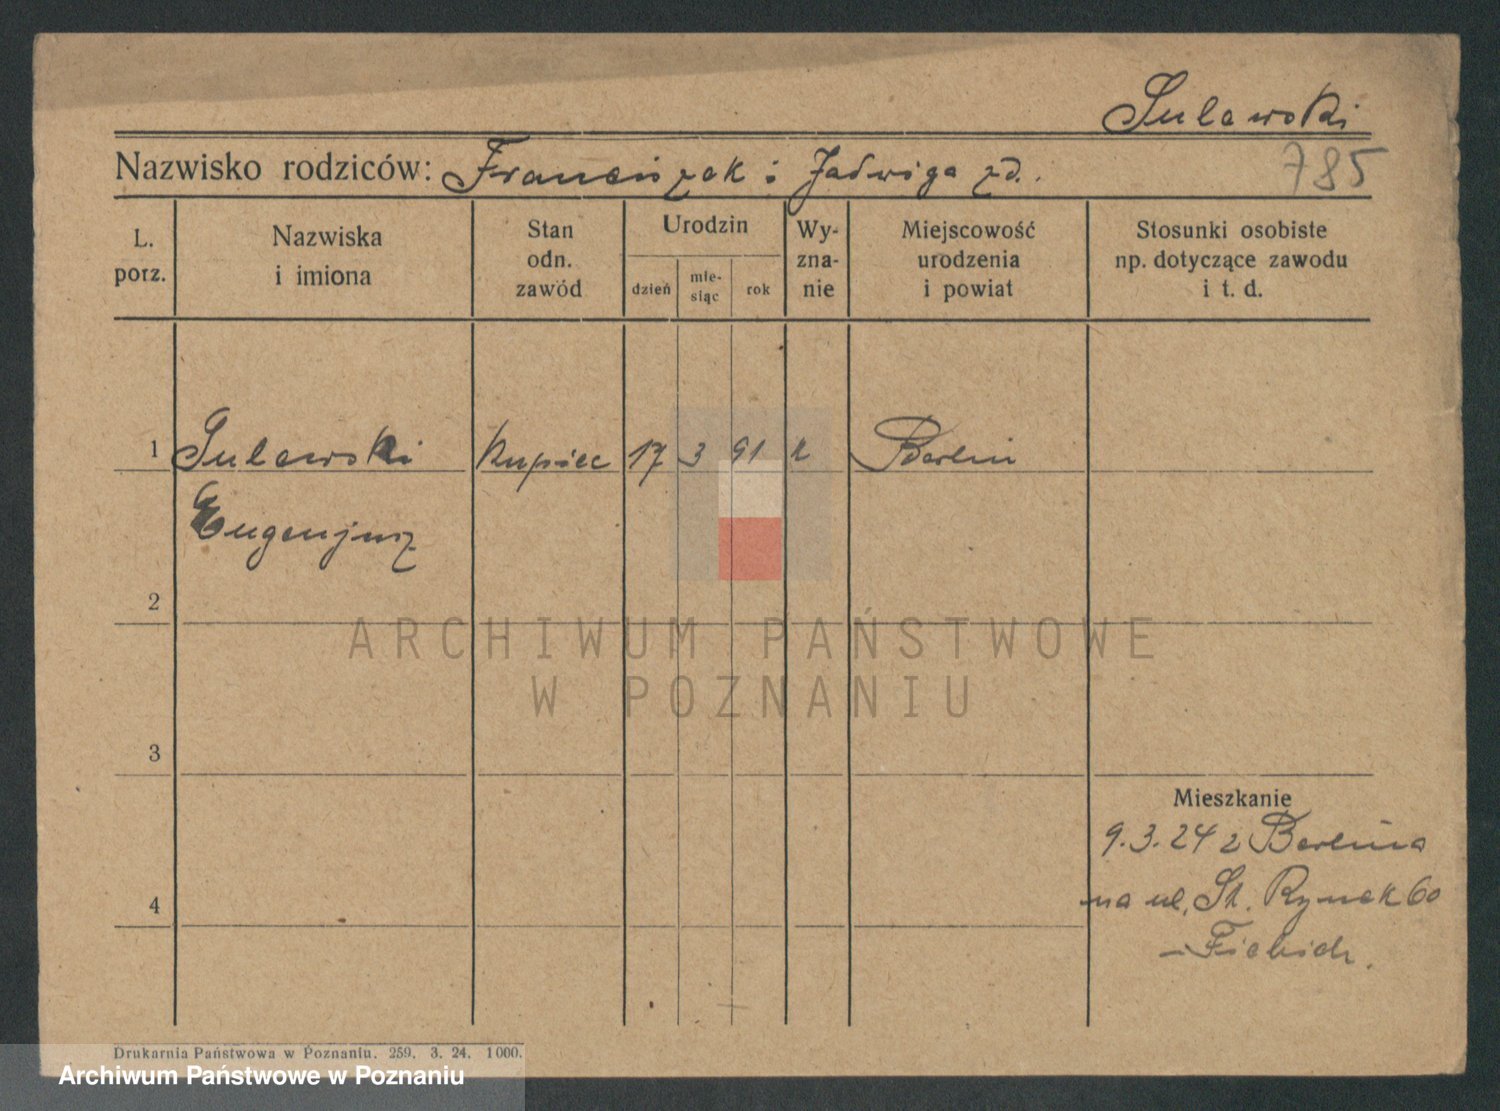 Sulewski
Nazwisko rodziców: Franciszek i Jadwiga zd.
785
L. porz.
Nazwiska i imiona
Stan odn. zawód
Urodzin
dzień
mie-siąc
rok
Wy-zna-nie
Miejscowość urodzenia i powiat
Stosunki osobiste np. dotyczące zawodu i t. d.
1 Sulewski kupiec 17 3 91 k Berlin
Eugenjusz
2
3
4
Mieszkanie
9.3.24 z Berlina
na ul. St. Rynek 60
– Fiebich.
ARCHIWUM PAŃSTWOWE
W POZNANIU
Drukarnia Państwowa w Poznaniu. 259. 3. 24. 1000.
Archiwum Państwowe w Poznaniu